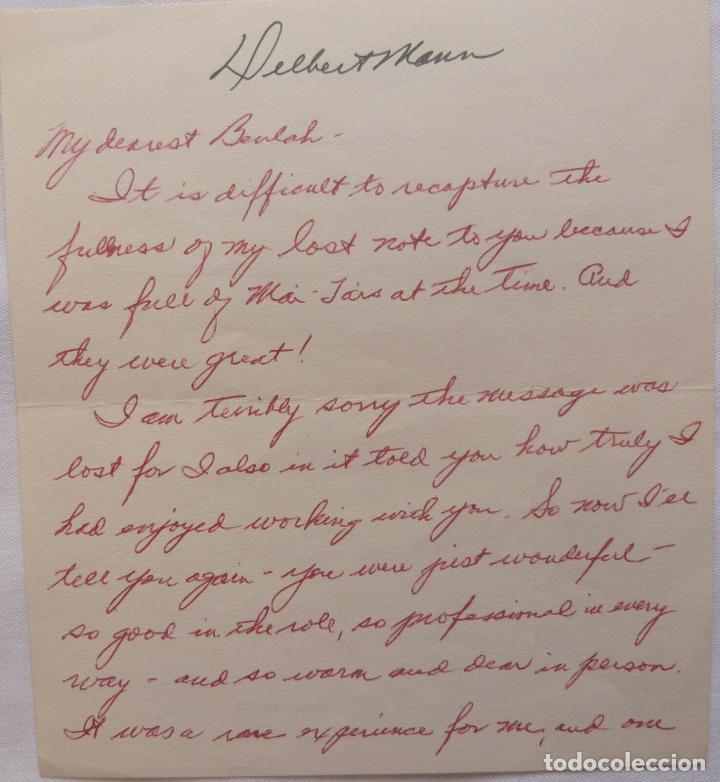 Delbert Mann
My dearest Beulah -
It is difficult to recapture the
fullness of my lost note to you because I
was full of Mai-Tais at the time. And
they were great!
I am terribly sorry the message was
lost for I also in it told you how truly I
had enjoyed working with you. So now I'll
tell you again - you were just wonderful -
so good in the role, so professional in every
way - and so warm and dear in person.
It was a rare experience for me, and one
todocoleccion